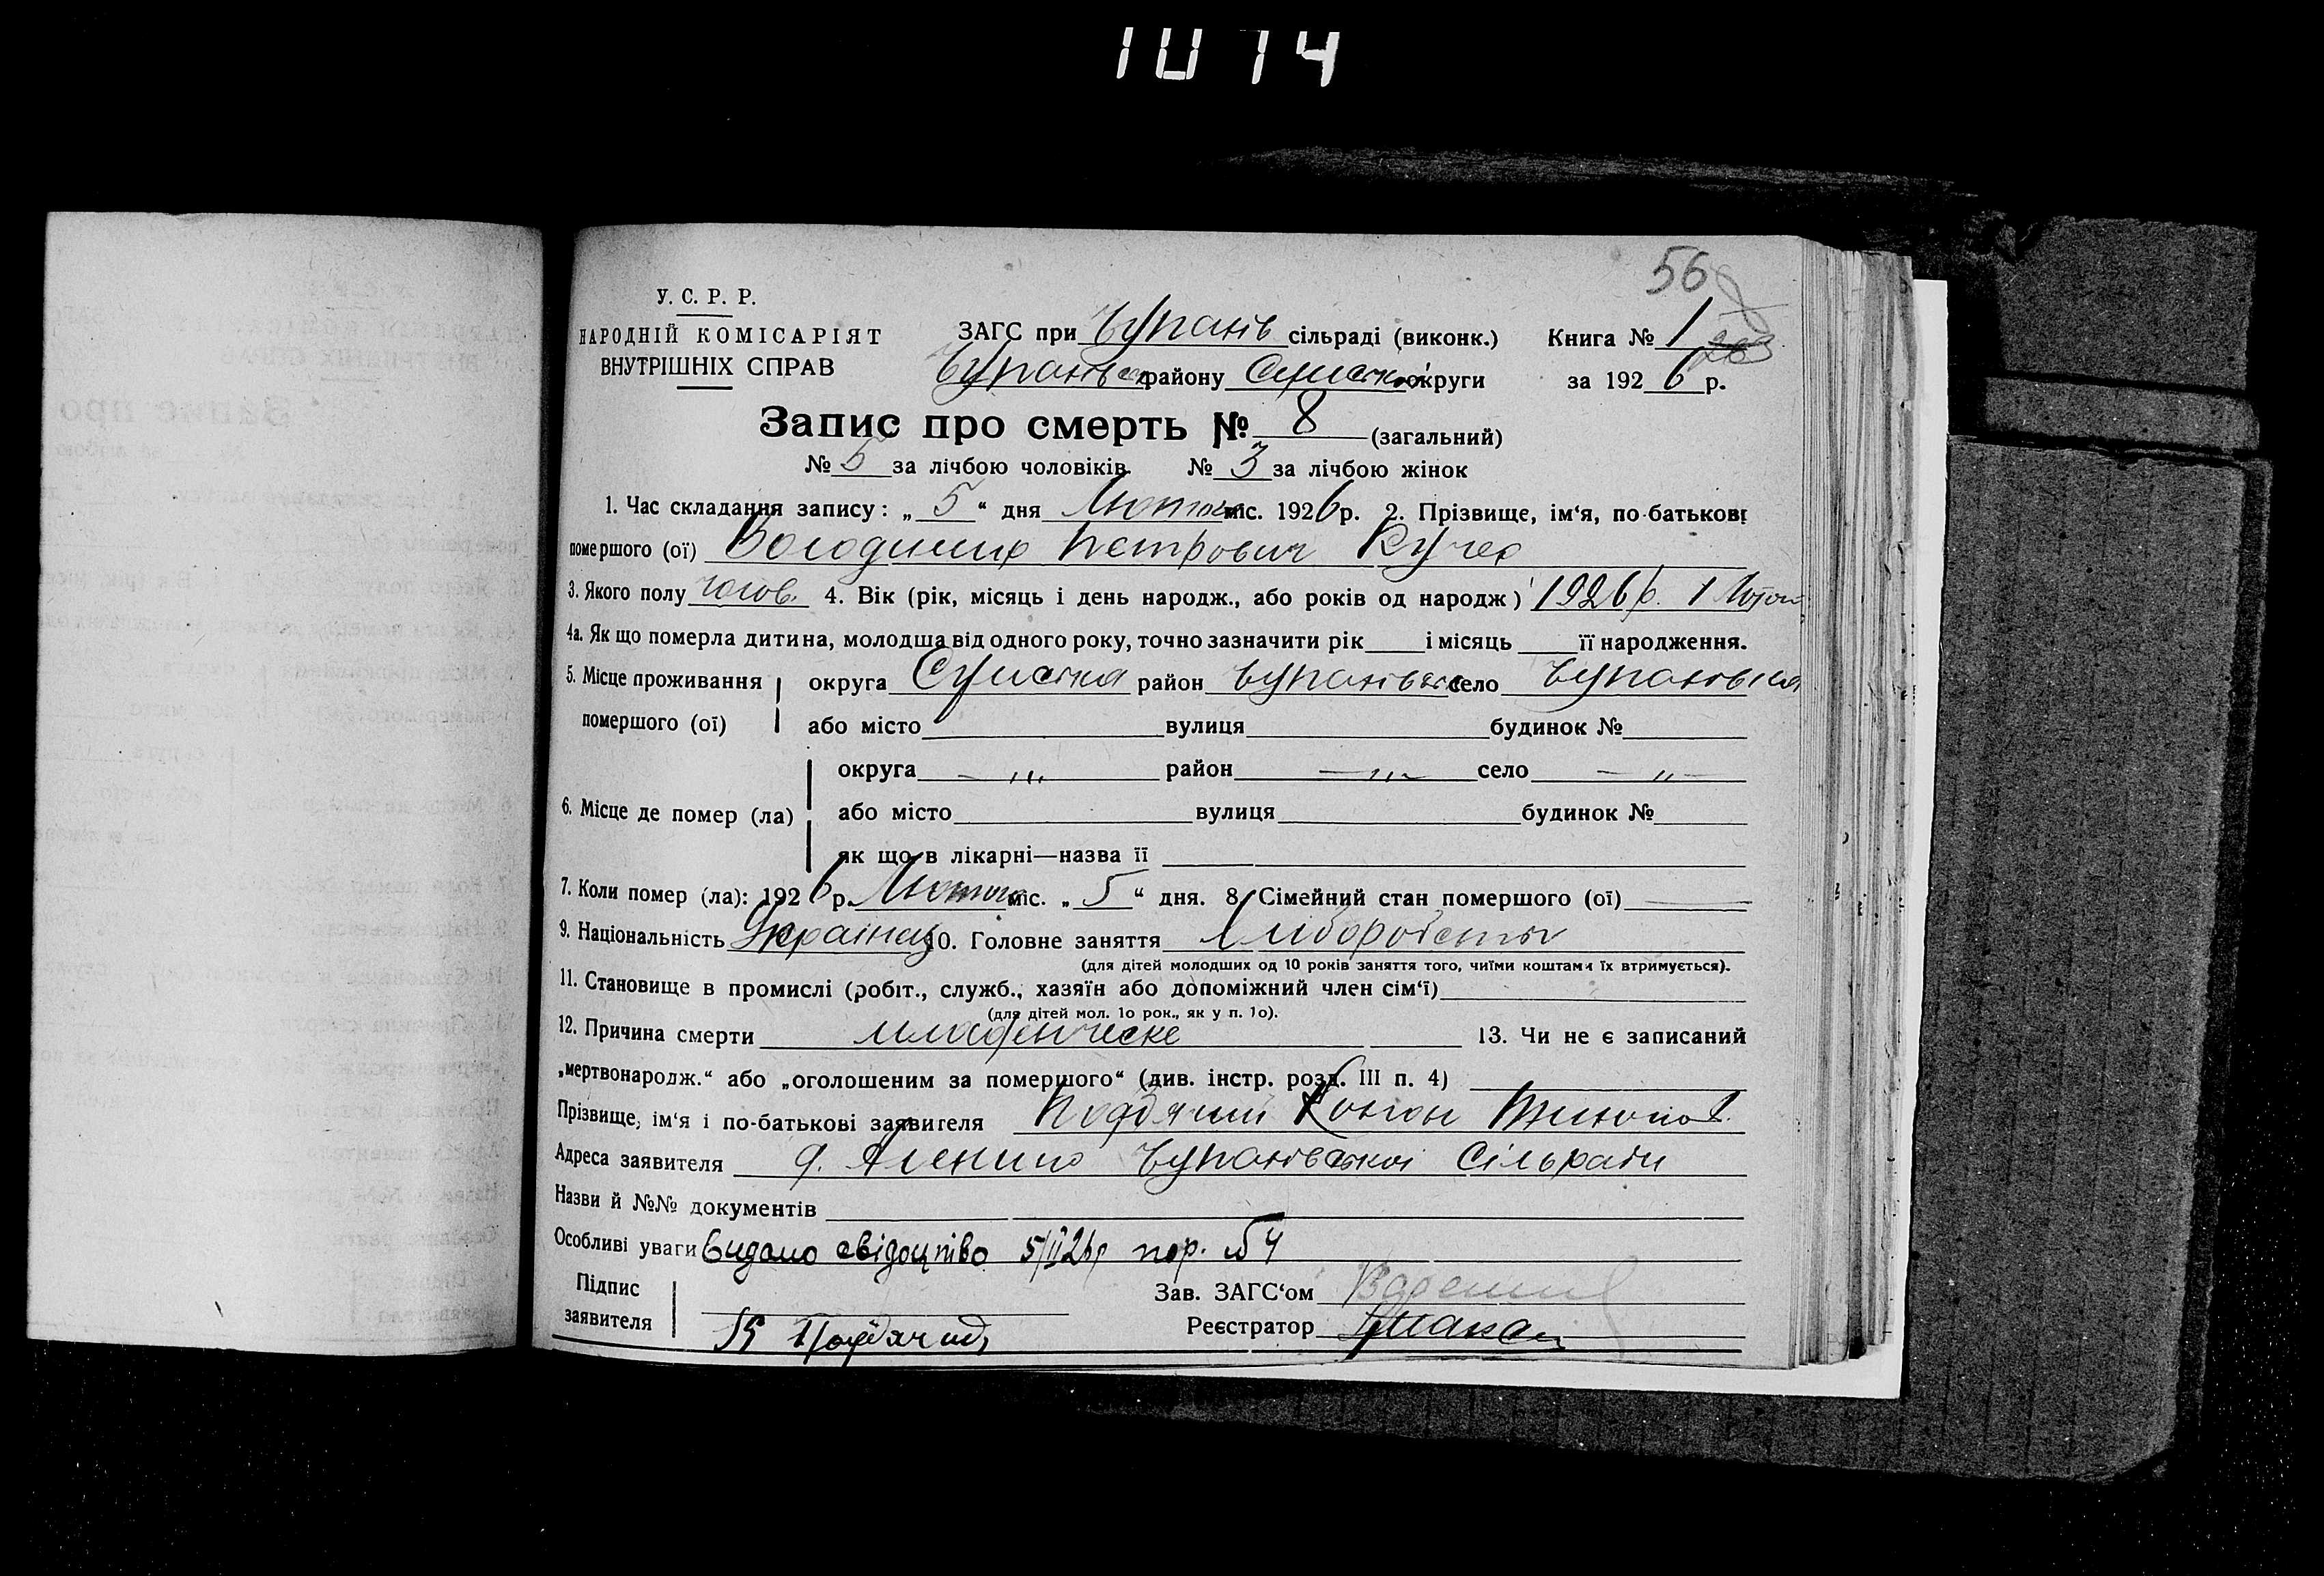 1074
56
У. С. Р. Р.
НАРОДНІЙ КОМІСАРІЯТ
ВНУТРІШНІХ СПРАВ
ЗАГС при Чупахів сільраді (виконк.) Книга № 1
району Сумської округи за 1926 р.
Запис про смерть № 8 (загальний)
№ 5 за лічбою чоловіків. № 3 за лічбою жінок
1. Час складання запису: „5“ дня Лютого міс. 1926 р. 2. Прізвище, ім‘я, по-батькові
помершого (ої) Володимир Петрович
3. Якого полу чолов. 4. Вік (рік, місяць і день народж., або років од народж) 1926 р. 1
4а. Як що померла дитина, молодша від одного року, точно зазначити рік і місяць її народження.
5. Місце проживання округа Сумська район село Чупахівка
помершого (ої) або місто вулиця будинок №
округа — „„ район — „„ село — „ —
6. Місце де помер (ла) або місто вулиця будинок №
як що в лікарні—назва її
7. Коли помер (ла): 1926 р. Лютого міс. „5“ дня. 8. Сімейний стан помершого (ої) —
9. Національність Українец 10. Головне заняття Хлиборобство
(для дітей молодших од 10 років заняття того, чиїми коштами їх втримується).
11. Становище в промислі (робіт., служб., хазяїн або допоміжний член сім‘ї)
(для дітей мол. 1о рок., як у п. 1о).
12. Причина смерти младенческе 13. Чи не є записаний
„мертвонародж.“ або „оголошеним за помершого“ (див. інстр. розд. III п. 4)
Прізвище, ім‘я і по-батькові заявителя
Адреса заявителя Чупахівської Сільради
Назви й №№ документів
Особливі уваги Видано свідоцтво 5/II 26 р пор. № 4
Підпис
заявителя
Зав. ЗАГС‘ом
Реєстратор